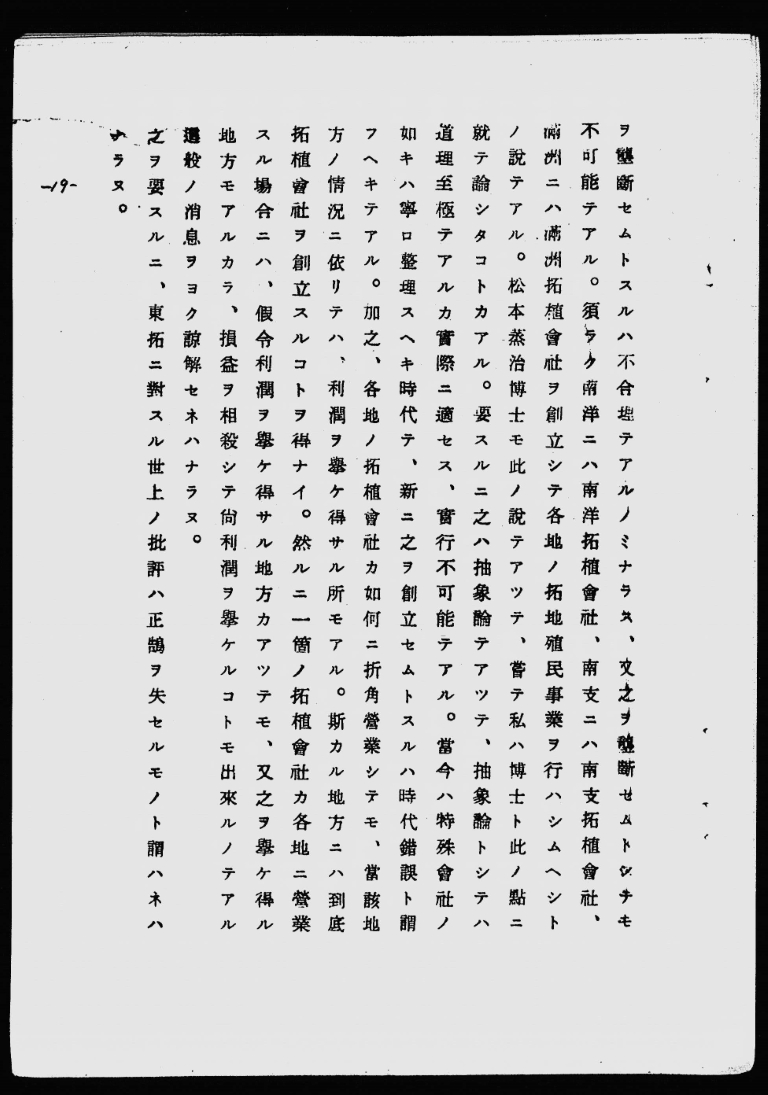 ヲ壟斷セムトスルハ不合理テアルノミナラス、又之ヲ壟斷セムトシテモ
不可能テアル。須ラク南洋ニハ南洋拓植會社、南支ニハ南支拓植會社、
滿洲ニハ滿洲拓植會社ヲ創立シテ各地ノ拓地殖民事業ヲ行ハシムヘシト
ノ說テアル。松本蒸治博士モ此ノ說テアツテ、嘗テ私ハ博士ト此ノ點ニ
就テ論シタコトカアル。要スルニ之ハ抽象論テアツテ、抽象論トシテハ
道理至極テアルカ實際ニ適セス、實行不可能テアル。當今ハ特殊會社ノ
如キハ寧ロ整理スヘキ時代テ、新ニ之ヲ創立セムトスルハ時代錯誤ト謂
フヘキテアル。加之、各地ノ拓植會社カ如何ニ折角營業シテモ、當該地
方ノ情況ニ依リテハ、利潤ヲ擧ケ得サル所モアル。斯カル地方ニハ到底
拓植會社ヲ創立スルコトヲ得ナイ。然ルニ一箇ノ拓植會社カ各地ニ營業
スル場合ニハ、假令利潤ヲ擧ケ得サル地方カアツテモ、又之ヲ擧ケ得ル
地方モアルカラ、損益ヲ相殺シテ尙利潤ヲ擧ケルコトモ出來ルノテアル
這般ノ消息ヲヨク諒解セネハナラヌ。
之ヲ要スルニ、東拓ニ對スル世上ノ批評ハ正鵠ヲ失セルモノト謂ハネハ
ナラヌ。
-19-